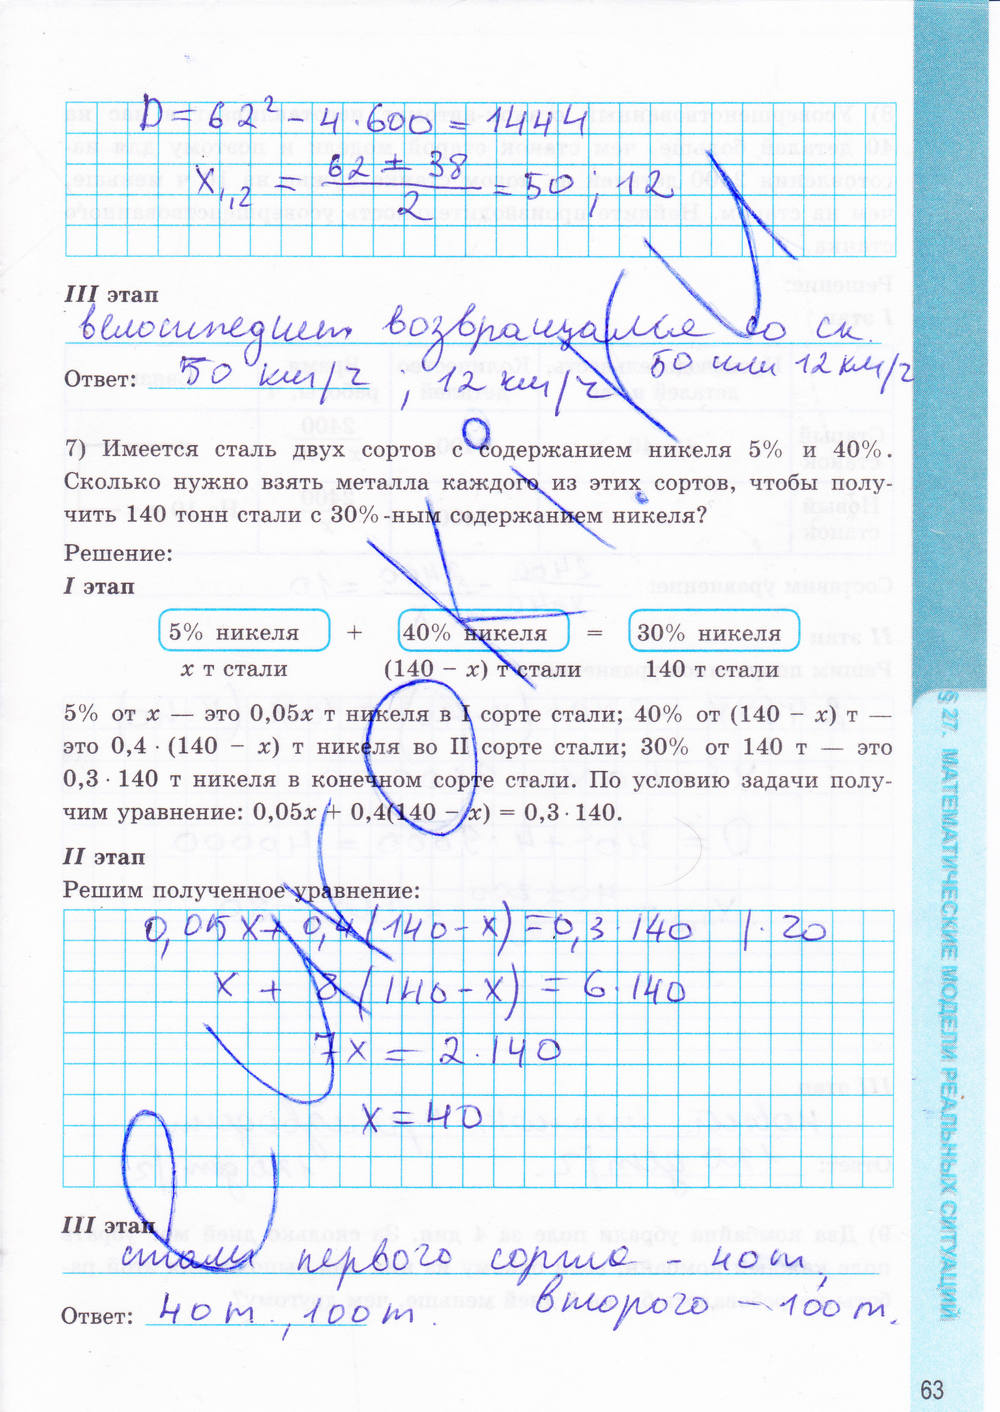 D = 62² − 4·600 = 1444
x₁,₂ = (62 ± 38)/2 = 50; 12.
III этап
велосипедист возвращался со ск.
50 или 12 км/ч
Ответ: 50 км/ч, 12 км/ч
7) Имеется сталь двух сортов с содержанием никеля 5% и 40%.
Сколько нужно взять металла каждого из этих сортов, чтобы полу-
чить 140 тонн стали с 30%-ным содержанием никеля?
Решение:
I этап
5% никеля + 40% никеля = 30% никеля
x т стали (140 − x) т стали 140 т стали
5% от x — это 0,05x т никеля в I сорте стали; 40% от (140 − x) т —
это 0,4 · (140 − x) т никеля во II сорте стали; 30% от 140 т — это
0,3 · 140 т никеля в конечном сорте стали. По условию задачи полу-
чим уравнение: 0,05x + 0,4(140 − x) = 0,3 · 140.
II этап
Решим полученное уравнение:
0,05x + 0,4(140 − x) = 0,3·140 |·20
x + 8(140 − x) = 6·140
7x = 2·140
x = 40
III этап
стали первого сорта – 40 т,
второго – 100 т.
Ответ: 40 т., 100 т.
§ 27. МАТЕМАТИЧЕСКИЕ МОДЕЛИ РЕАЛЬНЫХ СИТУАЦИЙ
63